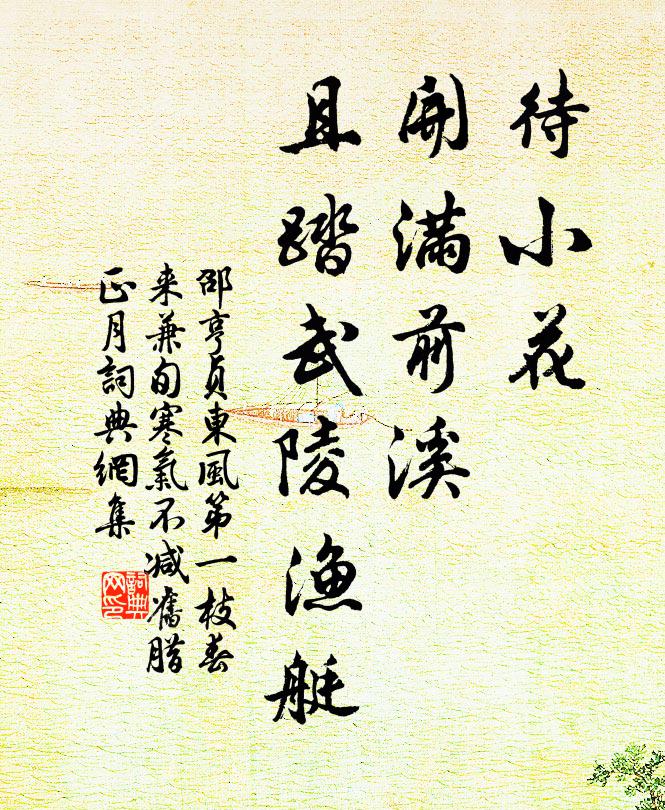 待小花
開滿前溪
且踏武陵漁艇
邵亨貞東風第一枝春
来兼旬寒氣不減舊腊
正月詞典網集
詞典
网印